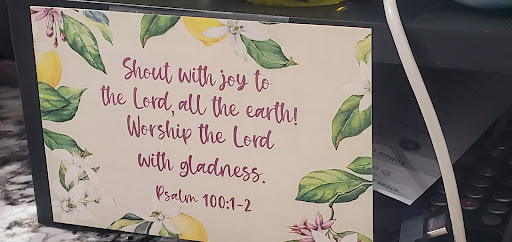 Shout with joy to
the Lord, all the earth!
Worship the Lord
with gladness.
Psalm 100:1-2